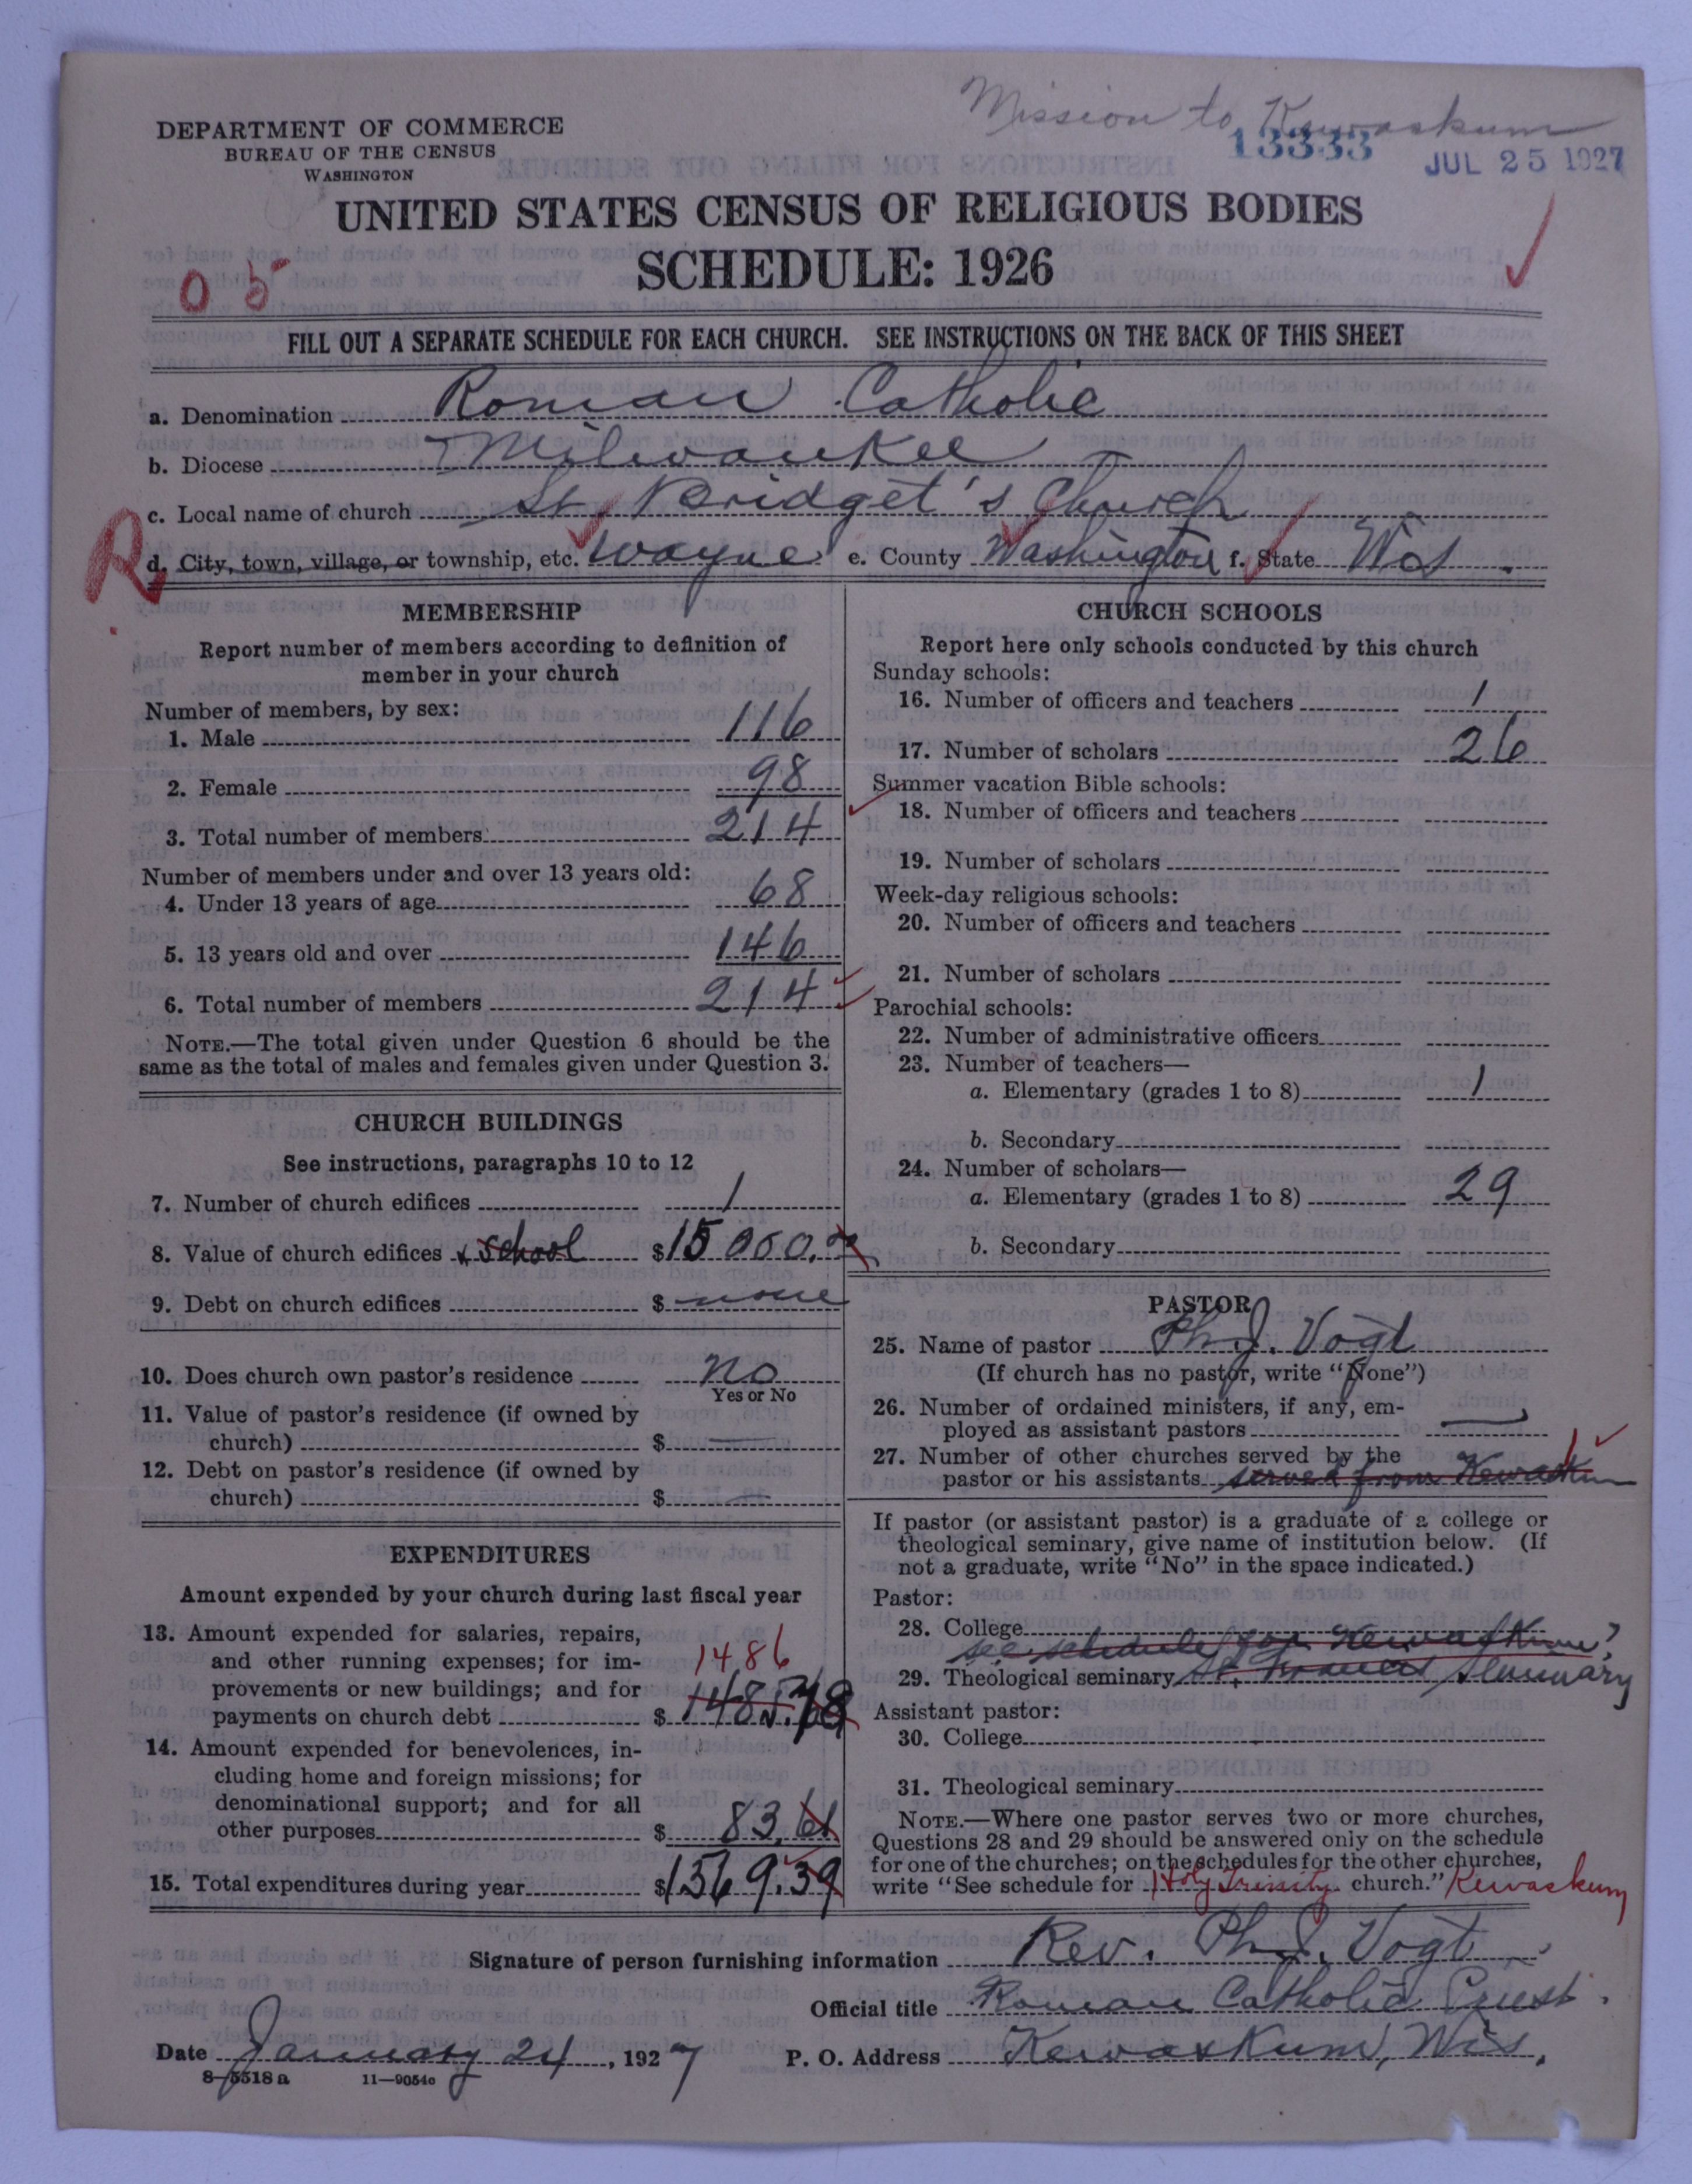 Mission to Kewaskum
13333
JUL 25 1927
DEPARTMENT OF COMMERCE
BUREAU OF THE CENSUS
WASHINGTON
UNITED STATES CENSUS OF RELIGIOUS BODIES
SCHEDULE: 1926
0 5
FILL OUT A SEPARATE SCHEDULE FOR EACH CHURCH. SEE INSTRUCTIONS ON THE BACK OF THIS SHEET
a. Denomination Roman Catholic
b. Diocese Milwaukee
c. Local name of church St. Bridget's Church
R
d. City, town, village, or township, etc. Wayne e. County Washington f. State Wis.
MEMBERSHIP
Report number of members according to definition of
member in your church
Number of members, by sex:
1. Male 116
2. Female 98
3. Total number of members 214
Number of members under and over 13 years old:
4. Under 13 years of age 68
5. 13 years old and over 146
6. Total number of members 214
NOTE.—The total given under Question 6 should be the
same as the total of males and females given under Question 3.
CHURCH BUILDINGS
See instructions, paragraphs 10 to 12
7. Number of church edifices 1
8. Value of church edifices & school $15000.00
9. Debt on church edifices $ none
10. Does church own pastor's residence no
Yes or No
11. Value of pastor's residence (if owned by
church) $
12. Debt on pastor's residence (if owned by
church) $
EXPENDITURES
Amount expended by your church during last fiscal year
13. Amount expended for salaries, repairs,
and other running expenses; for im-
1486
provements or new buildings; and for
payments on church debt $ 1485.78
14. Amount expended for benevolences, in-
cluding home and foreign missions; for
denominational support; and for all
other purposes $ 83.61
15. Total expenditures during year $1569.39
CHURCH SCHOOLS
Report here only schools conducted by this church
Sunday schools:
16. Number of officers and teachers 1
17. Number of scholars 26
Summer vacation Bible schools:
18. Number of officers and teachers
19. Number of scholars
Week-day religious schools:
20. Number of officers and teachers
21. Number of scholars
Parochial schools:
22. Number of administrative officers
23. Number of teachers—
a. Elementary (grades 1 to 8) 1
b. Secondary
24. Number of scholars—
a. Elementary (grades 1 to 8) 29
b. Secondary
PASTOR
25. Name of pastor Ph. J. Vogt
(If church has no pastor, write "None")
26. Number of ordained ministers, if any, em-
ployed as assistant pastors
27. Number of other churches served by the 1
pastor or his assistants served from Kewaskum
If pastor (or assistant pastor) is a graduate of a college or
theological seminary, give name of institution below. (If
not a graduate, write "No" in the space indicated.)
Pastor:
28. College
see schedule for Kewaskum
29. Theological seminary St. Francis Seminary
Assistant pastor:
30. College
31. Theological seminary
NOTE.—Where one pastor serves two or more churches,
Questions 28 and 29 should be answered only on the schedule
for one of the churches; on the schedules for the other churches,
write "See schedule for Holy Trinity church." Kewaskum
Signature of person furnishing information Rev. Ph. J. Vogt
Official title Roman Catholic Priest.
Date January 24, 1927 P. O. Address Kewaskum, Wis.
8—5518a 11—9054c